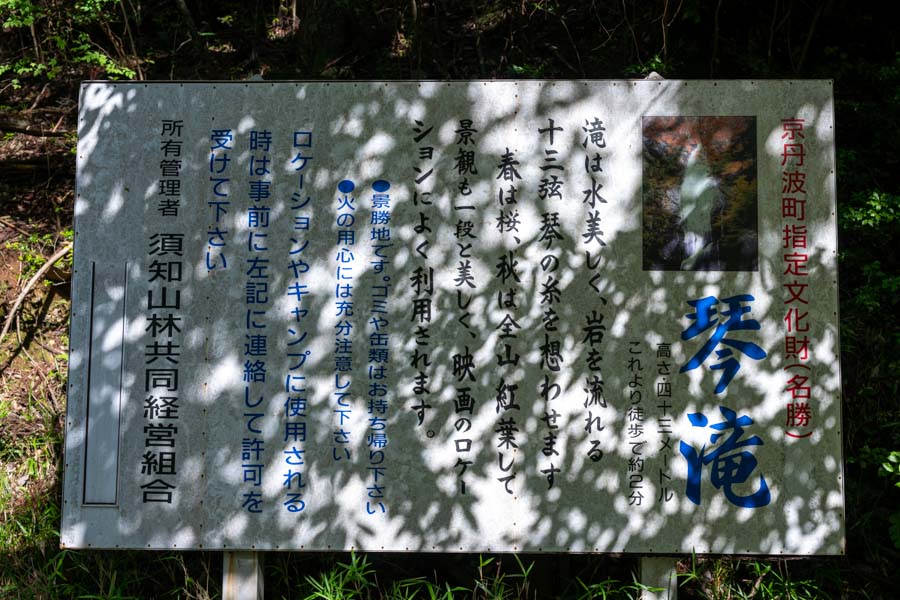 京丹波町指定文化財(名勝)
琴滝
高さ・四十三メートル
これより徒歩で約2分
滝は水美しく、岩を流れる
十三弦 琴の糸を想わせます
春は桜、秋は全山紅葉して
景観も一段と美しく、映画のロケー
ションによく利用されます。
●景勝地です。ゴミや缶類はお持ち帰り下さい
●火の用心には充分注意して下さい
ロケーションやキャンプに使用される
時は事前に左記に連絡して許可を
受けて下さい
所有管理者 須知山林共同経営組合